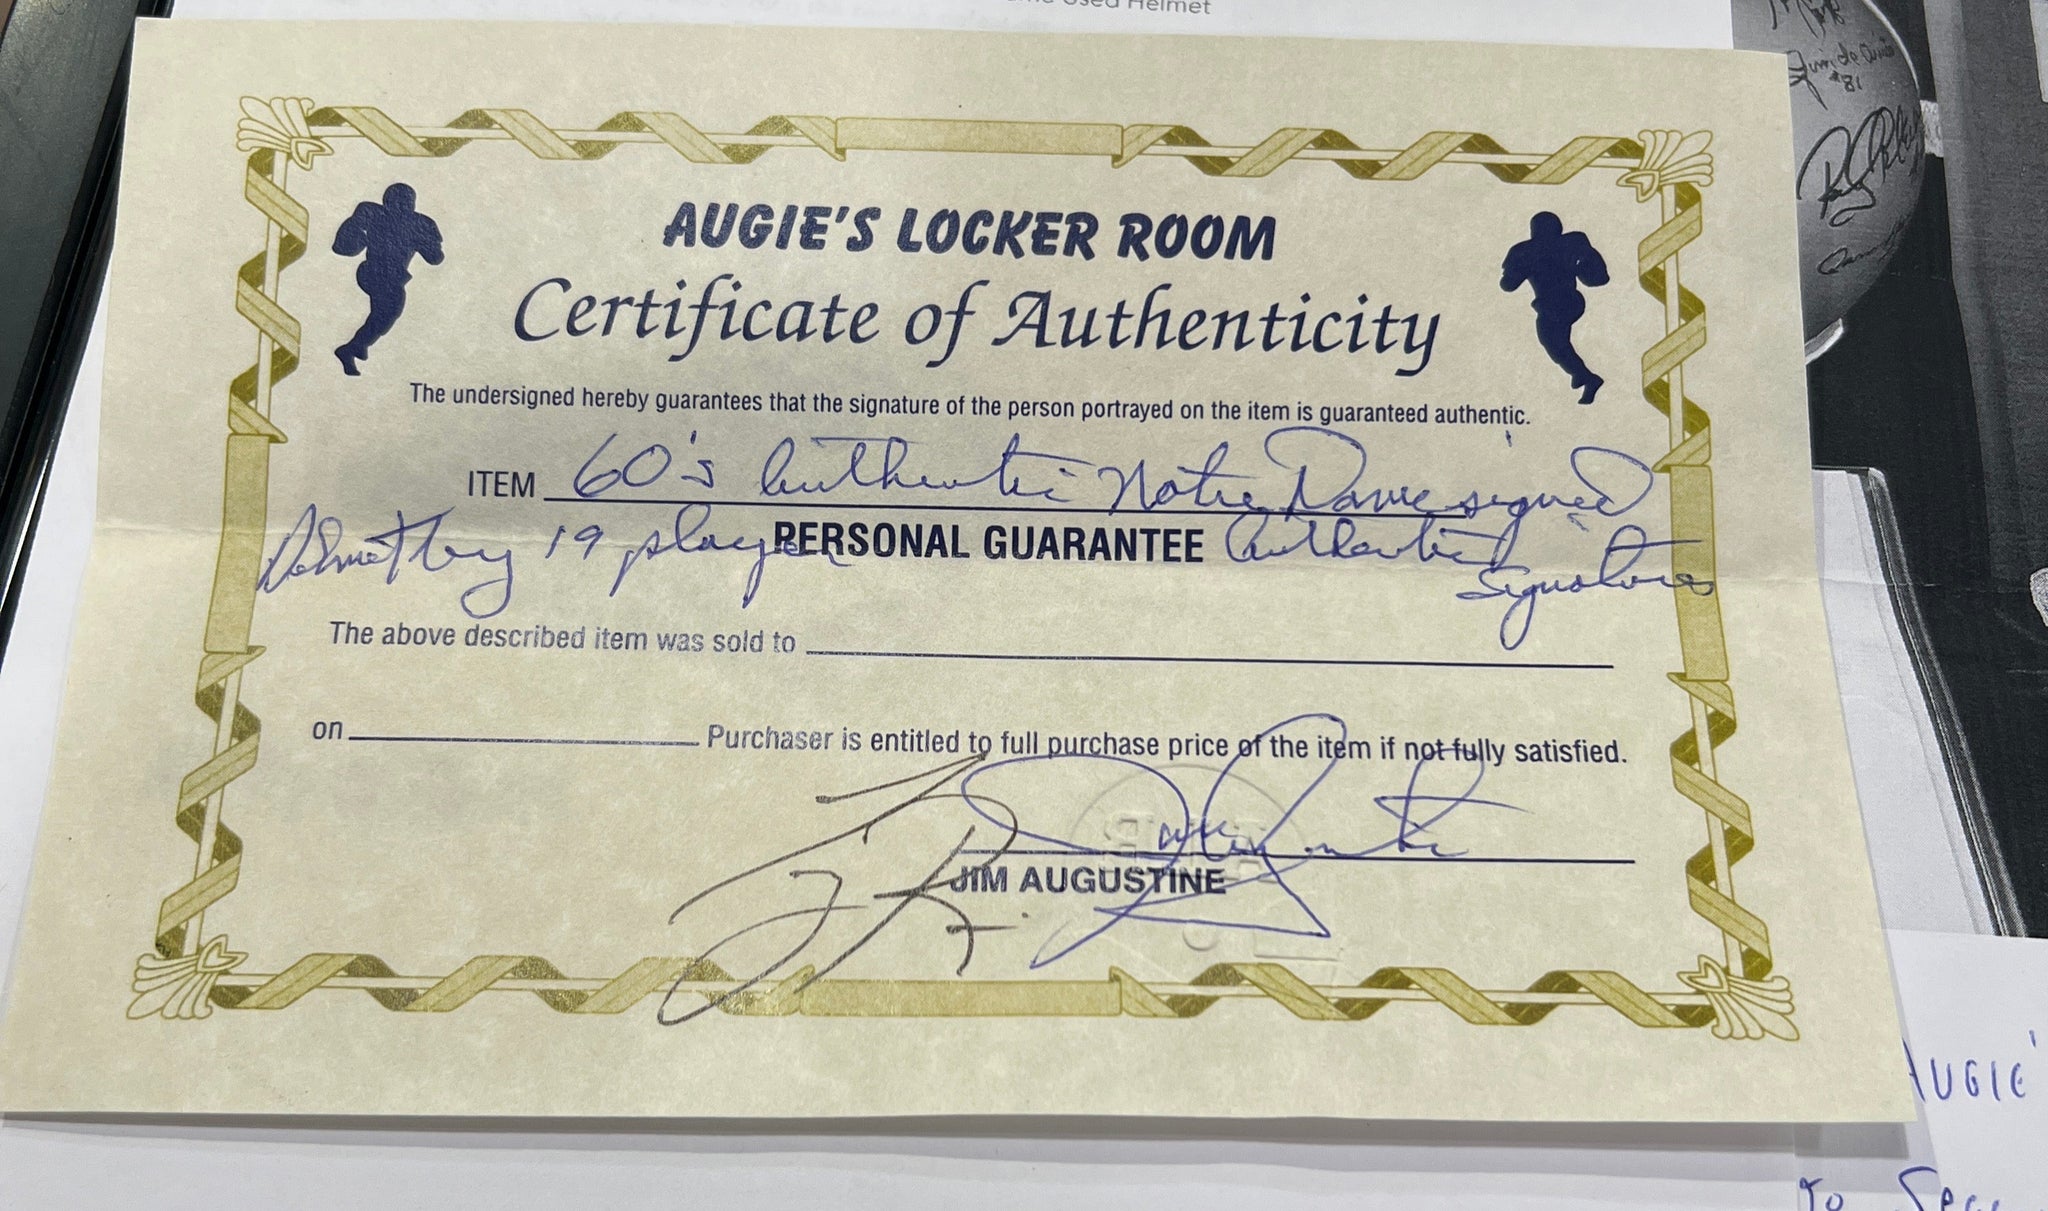 Used Helmet
AUGIE'S LOCKER ROOM
Certificate of Authenticity
The undersigned hereby guarantees that the signature of the person portrayed on the item is guaranteed authentic.
ITEM 60's Authentic Notre Dame signed
Helmet by 19 players PERSONAL GUARANTEE Authentic
Signatures
The above described item was sold to
on Purchaser is entitled to full purchase price of the item if not fully satisfied.
JIM AUGUSTINE
#81
AUGIE'
TO